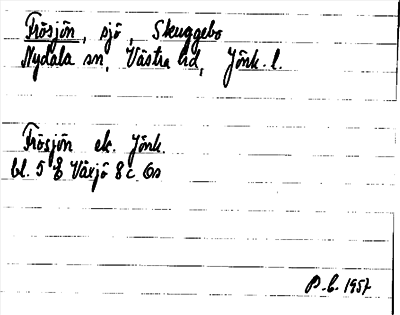 Frösjön, sjö, Skuggebo
Nydala sn, Västra hd, Jönk. l.
Frösjön ek. Jönk.
bl. 5 Växjö 8c 6s
P. 1957